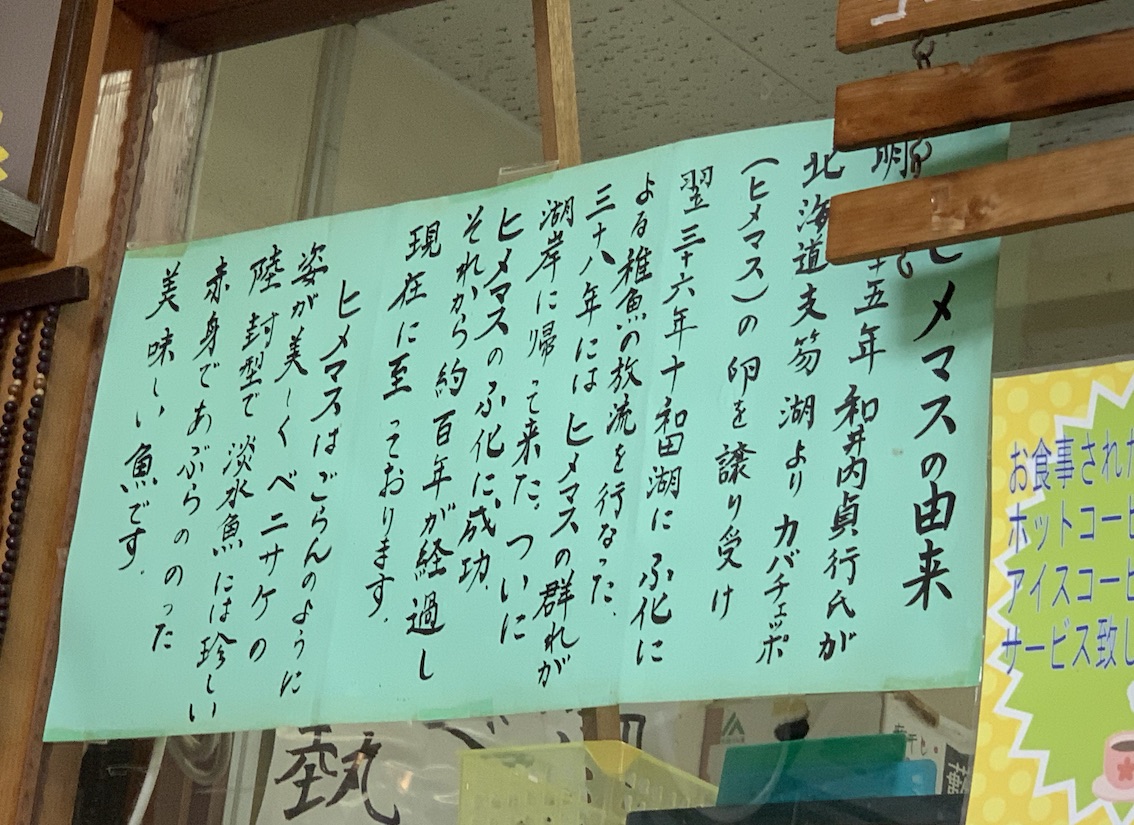 ヒメマスの由来
明
十五年 和井内貞行氏が
北海道支笏湖より カバチェッポ
(ヒメマス)の卵を譲り受け
翌三十六年十和田湖に ふ化に
よる稚魚の放流を行なった、
三十八年には ヒメマスの群れが
湖岸に帰って来た、ついに
ヒメマスのふ化に成功、
それから約百年が経過し
現在に至っております。
ヒメマスはごらんのように
姿が美しく ベニサケの
陸封型で 淡水魚には珍しい
赤身であぶらののった
美味しい魚です。
お食事された
ホットコーヒ
アイスコーヒ
サービス致し